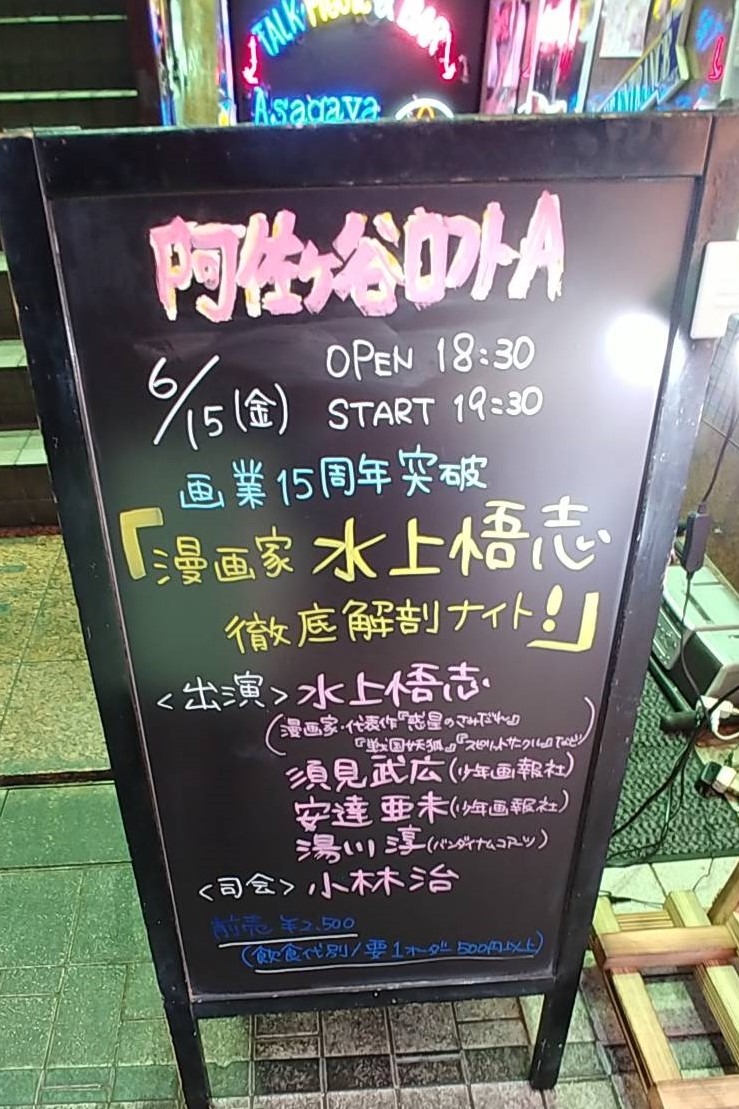 TALK
Asagaya
阿佐ヶ谷ロフトA
6/15(金)
OPEN 18:30
START 19:30
画業15周年突破
「漫画家 水上悟志
徹底解剖ナイト!」
<出演> 水上悟志
(漫画家・代表作『惑星のさみだれ』
『戦国妖狐』『スピリットサークル』など)
須見武広(少年画報社)
安達亜未(少年画報社)
湯川淳(バンダイナムコアーツ)
<司会> 小林治
前売 ¥2,500
(飲食代別/要1オーダー500円以上)